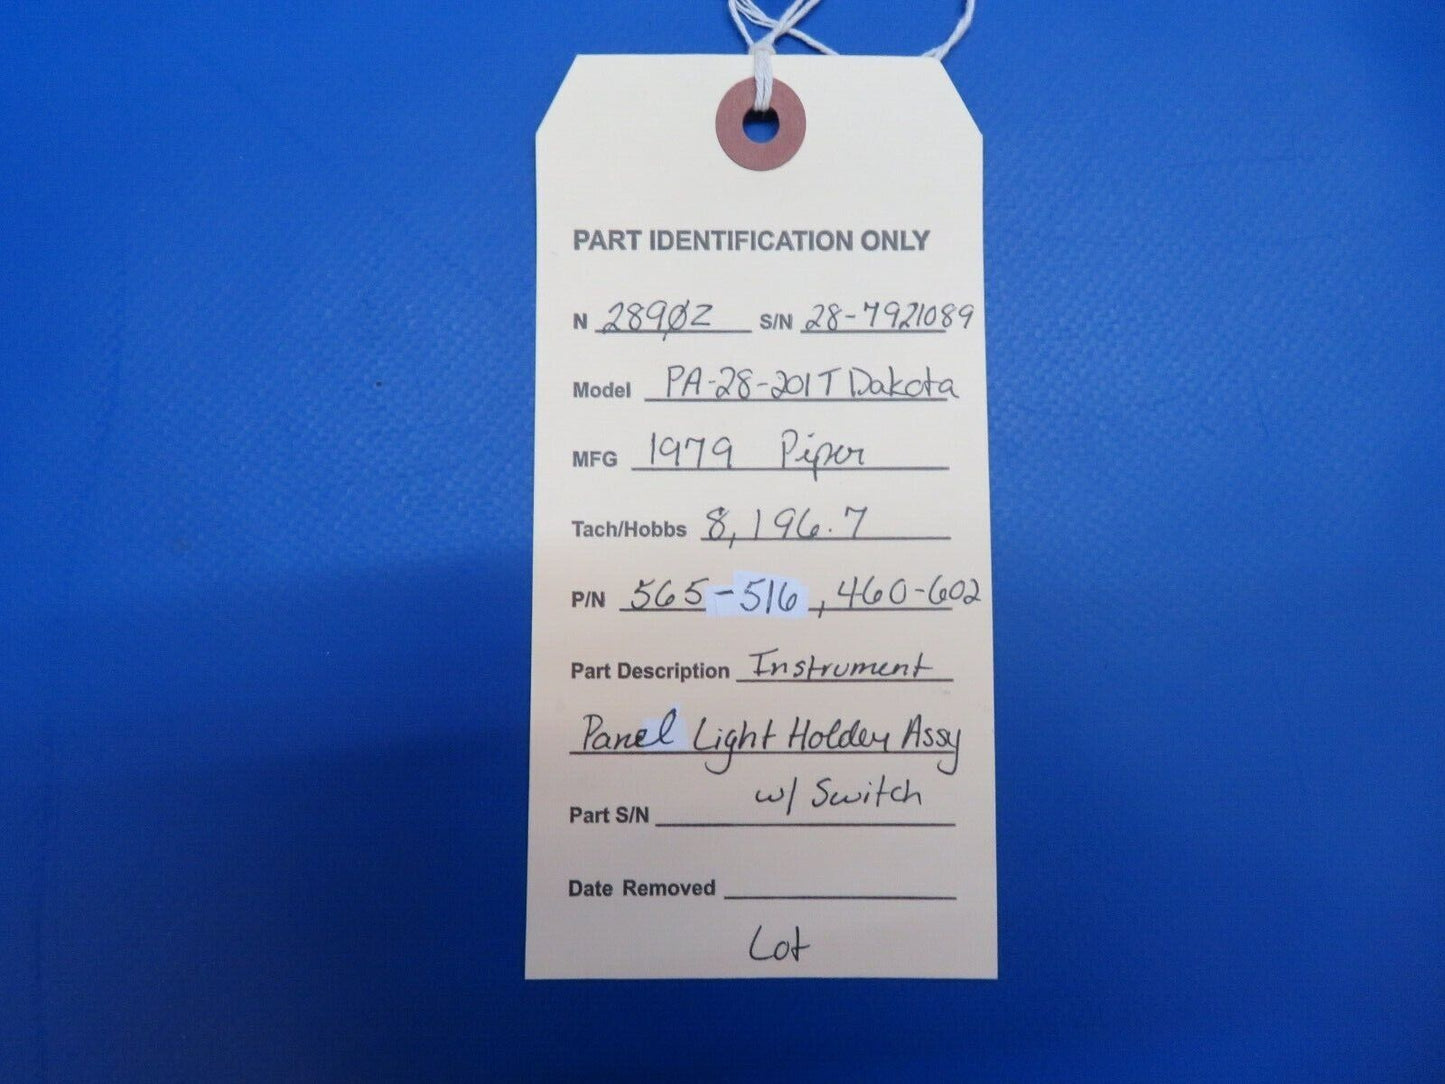 PART IDENTIFICATION ONLY
N 2890Z S/N 28-7921089
Model PA-28-201T Dakota
MFG 1979 Piper
Tach/Hobbs 8,196.7
P/N 565-516, 460-602
Part Description Instrument
Panel Light Holder Assy
w/ Switch
Part S/N
Date Removed
Lot